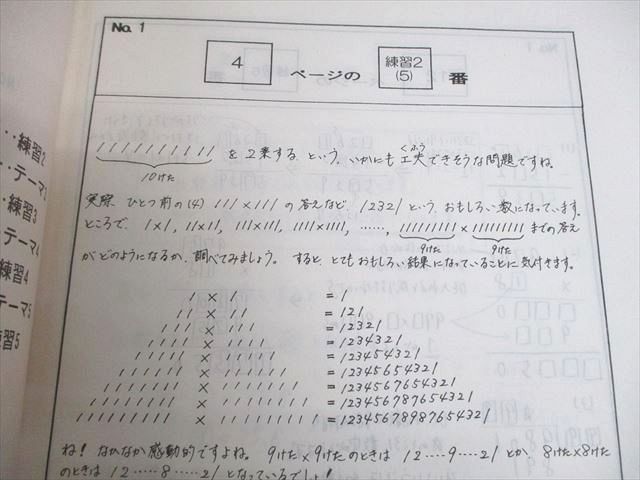 No.1
4 ページの 練習2(5) 番
1111111111 を2乗する、という、いかにも工夫できそうな問題ですね。
くふう
10けた
実際、ひとつ前の(4) 111×111 の答えなど、12321という、おもしろい数になっています。
ところで、1×1, 11×11, 111×111, 1111×1111, ……, 111111111×111111111 までの答え
9けた 9けた
がどのようになるか、調べてみましょう。 すると、とてもおもしろい結果になっていることに気付きます。
1 × 1 = 1
11 × 11 = 121
111 × 111 = 12321
1111 × 1111 = 1234321
11111 × 11111 = 123454321
111111 × 111111 = 12345654321
1111111 × 1111111 = 1234567654321
11111111 × 11111111 = 123456787654321
111111111 × 111111111 = 12345678987654321
ね! なかなか感動的ですよね。 9けた×9けたのときは 12…9…21 とか、8けた×8けた
のときは 12……8……21 となっているでしょ!
‥練習2
‥テーマ2
‥練習3
テーマ4
練習4
テーマ5
練習5